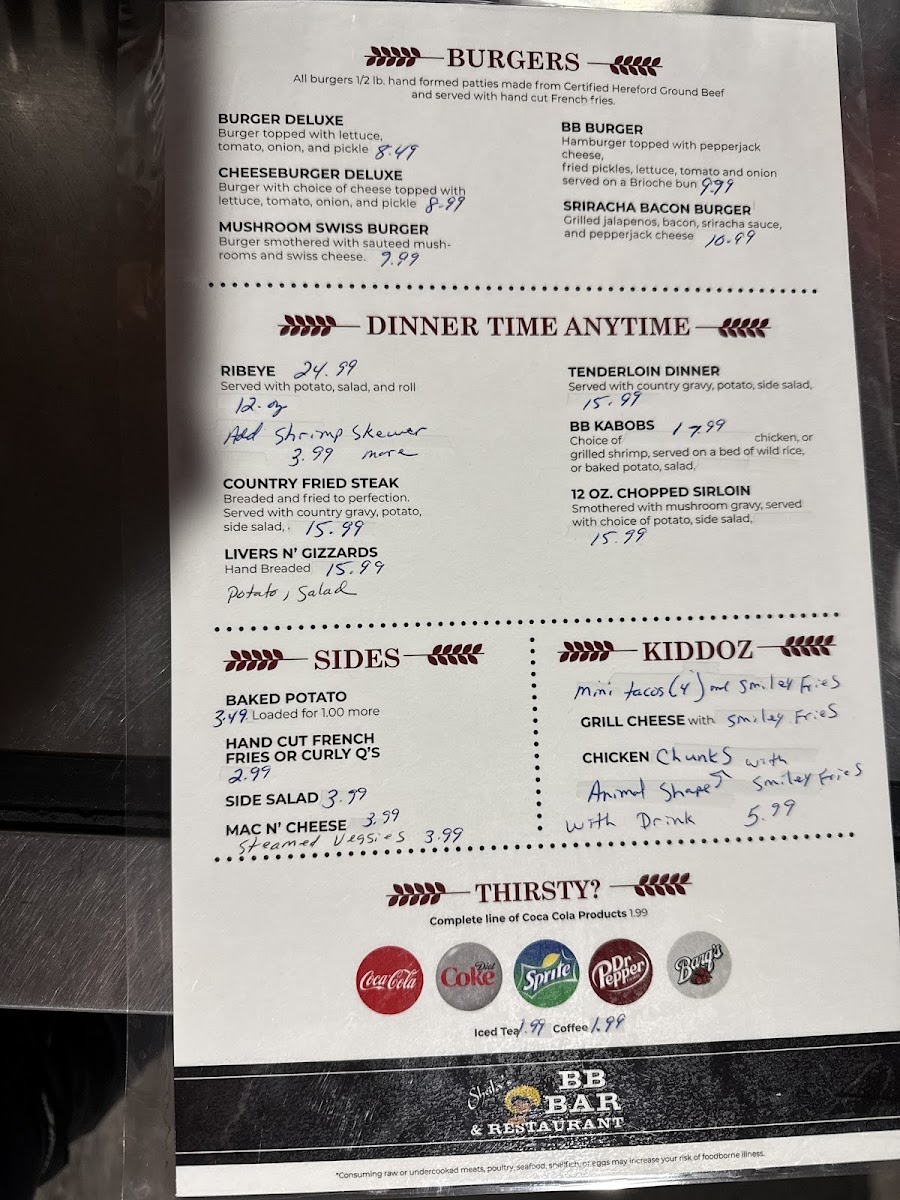 BURGERS
All burgers 1/2 lb. hand formed patties made from Certified Hereford Ground Beef
and served with hand cut French fries.
BURGER DELUXE
Burger topped with lettuce,
tomato, onion, and pickle 8.49
CHEESEBURGER DELUXE
Burger with choice of cheese topped with
lettuce, tomato, onion, and pickle 8.99
MUSHROOM SWISS BURGER
Burger smothered with sauteed mush-
rooms and swiss cheese. 9.99
BB BURGER
Hamburger topped with pepperjack
cheese,
fried pickles, lettuce, tomato and onion
served on a Brioche bun 9.99
SRIRACHA BACON BURGER
Grilled jalapenos, bacon, sriracha sauce,
and pepperjack cheese 10.99
DINNER TIME ANYTIME
RIBEYE 24.99
Served with potato, salad, and roll
12-oz
Add Shrimp Skewer
3.99 more
COUNTRY FRIED STEAK
Breaded and fried to perfection.
Served with country gravy, potato,
side salad, 15.99
LIVERS N' GIZZARDS
Hand Breaded 15.99
Potato, Salad
TENDERLOIN DINNER
Served with country gravy, potato, side salad,
15.99
BB KABOBS 17.99
Choice of chicken, or
grilled shrimp, served on a bed of wild rice,
or baked potato, salad,
12 OZ. CHOPPED SIRLOIN
Smothered with mushroom gravy, served
with choice of potato, side salad,
15.99
SIDES
BAKED POTATO
3.49 Loaded for 1.00 more
HAND CUT FRENCH
FRIES OR CURLY Q'S
2.99
SIDE SALAD 3.99
MAC N' CHEESE 3.99
Steamed Veggies 3.99
KIDDOZ
mini tacos (4) and Smiley Fries
GRILL CHEESE with Smiley Fries
CHICKEN Chunks with
Animal Shape Smiley Fries
with Drink 5.99
THIRSTY?
Complete line of Coca Cola Products 1.99
Coca-Cola
Diet Coke
Sprite
Dr Pepper
Barq's
Iced Tea 1.99 Coffee 1.99
BB
BAR
& RESTAURANT
*Consuming raw or undercooked meats, poultry, seafood, shellfish, or eggs may increase your risk of foodborne illness.